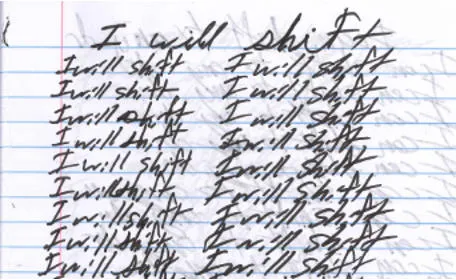 I will shift
I will shift I will shift
I will shift I will shift
I will shift I will shift
I will shift I will shift
I will shift I will shift
I will shift I will shift
I will shift I will shift
I will shift I will shift
I will shift I will shift